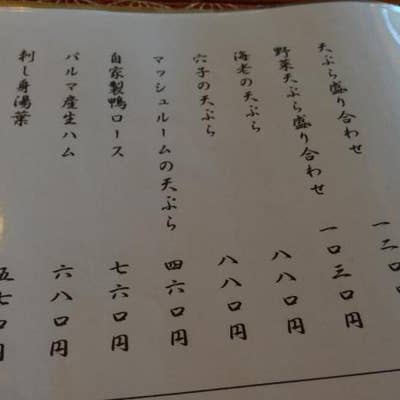 天ぷら盛り合わせ 一二〇
野菜天ぷら盛り合わせ 一〇三〇円
海老の天ぷら 八八〇円
穴子の天ぷら 八八〇円
マッシュルームの天ぷら 四六〇円
自家製鴨ロース 七六〇円
パルマ産生ハム 六八〇円
刺し身湯葉 五七〇円